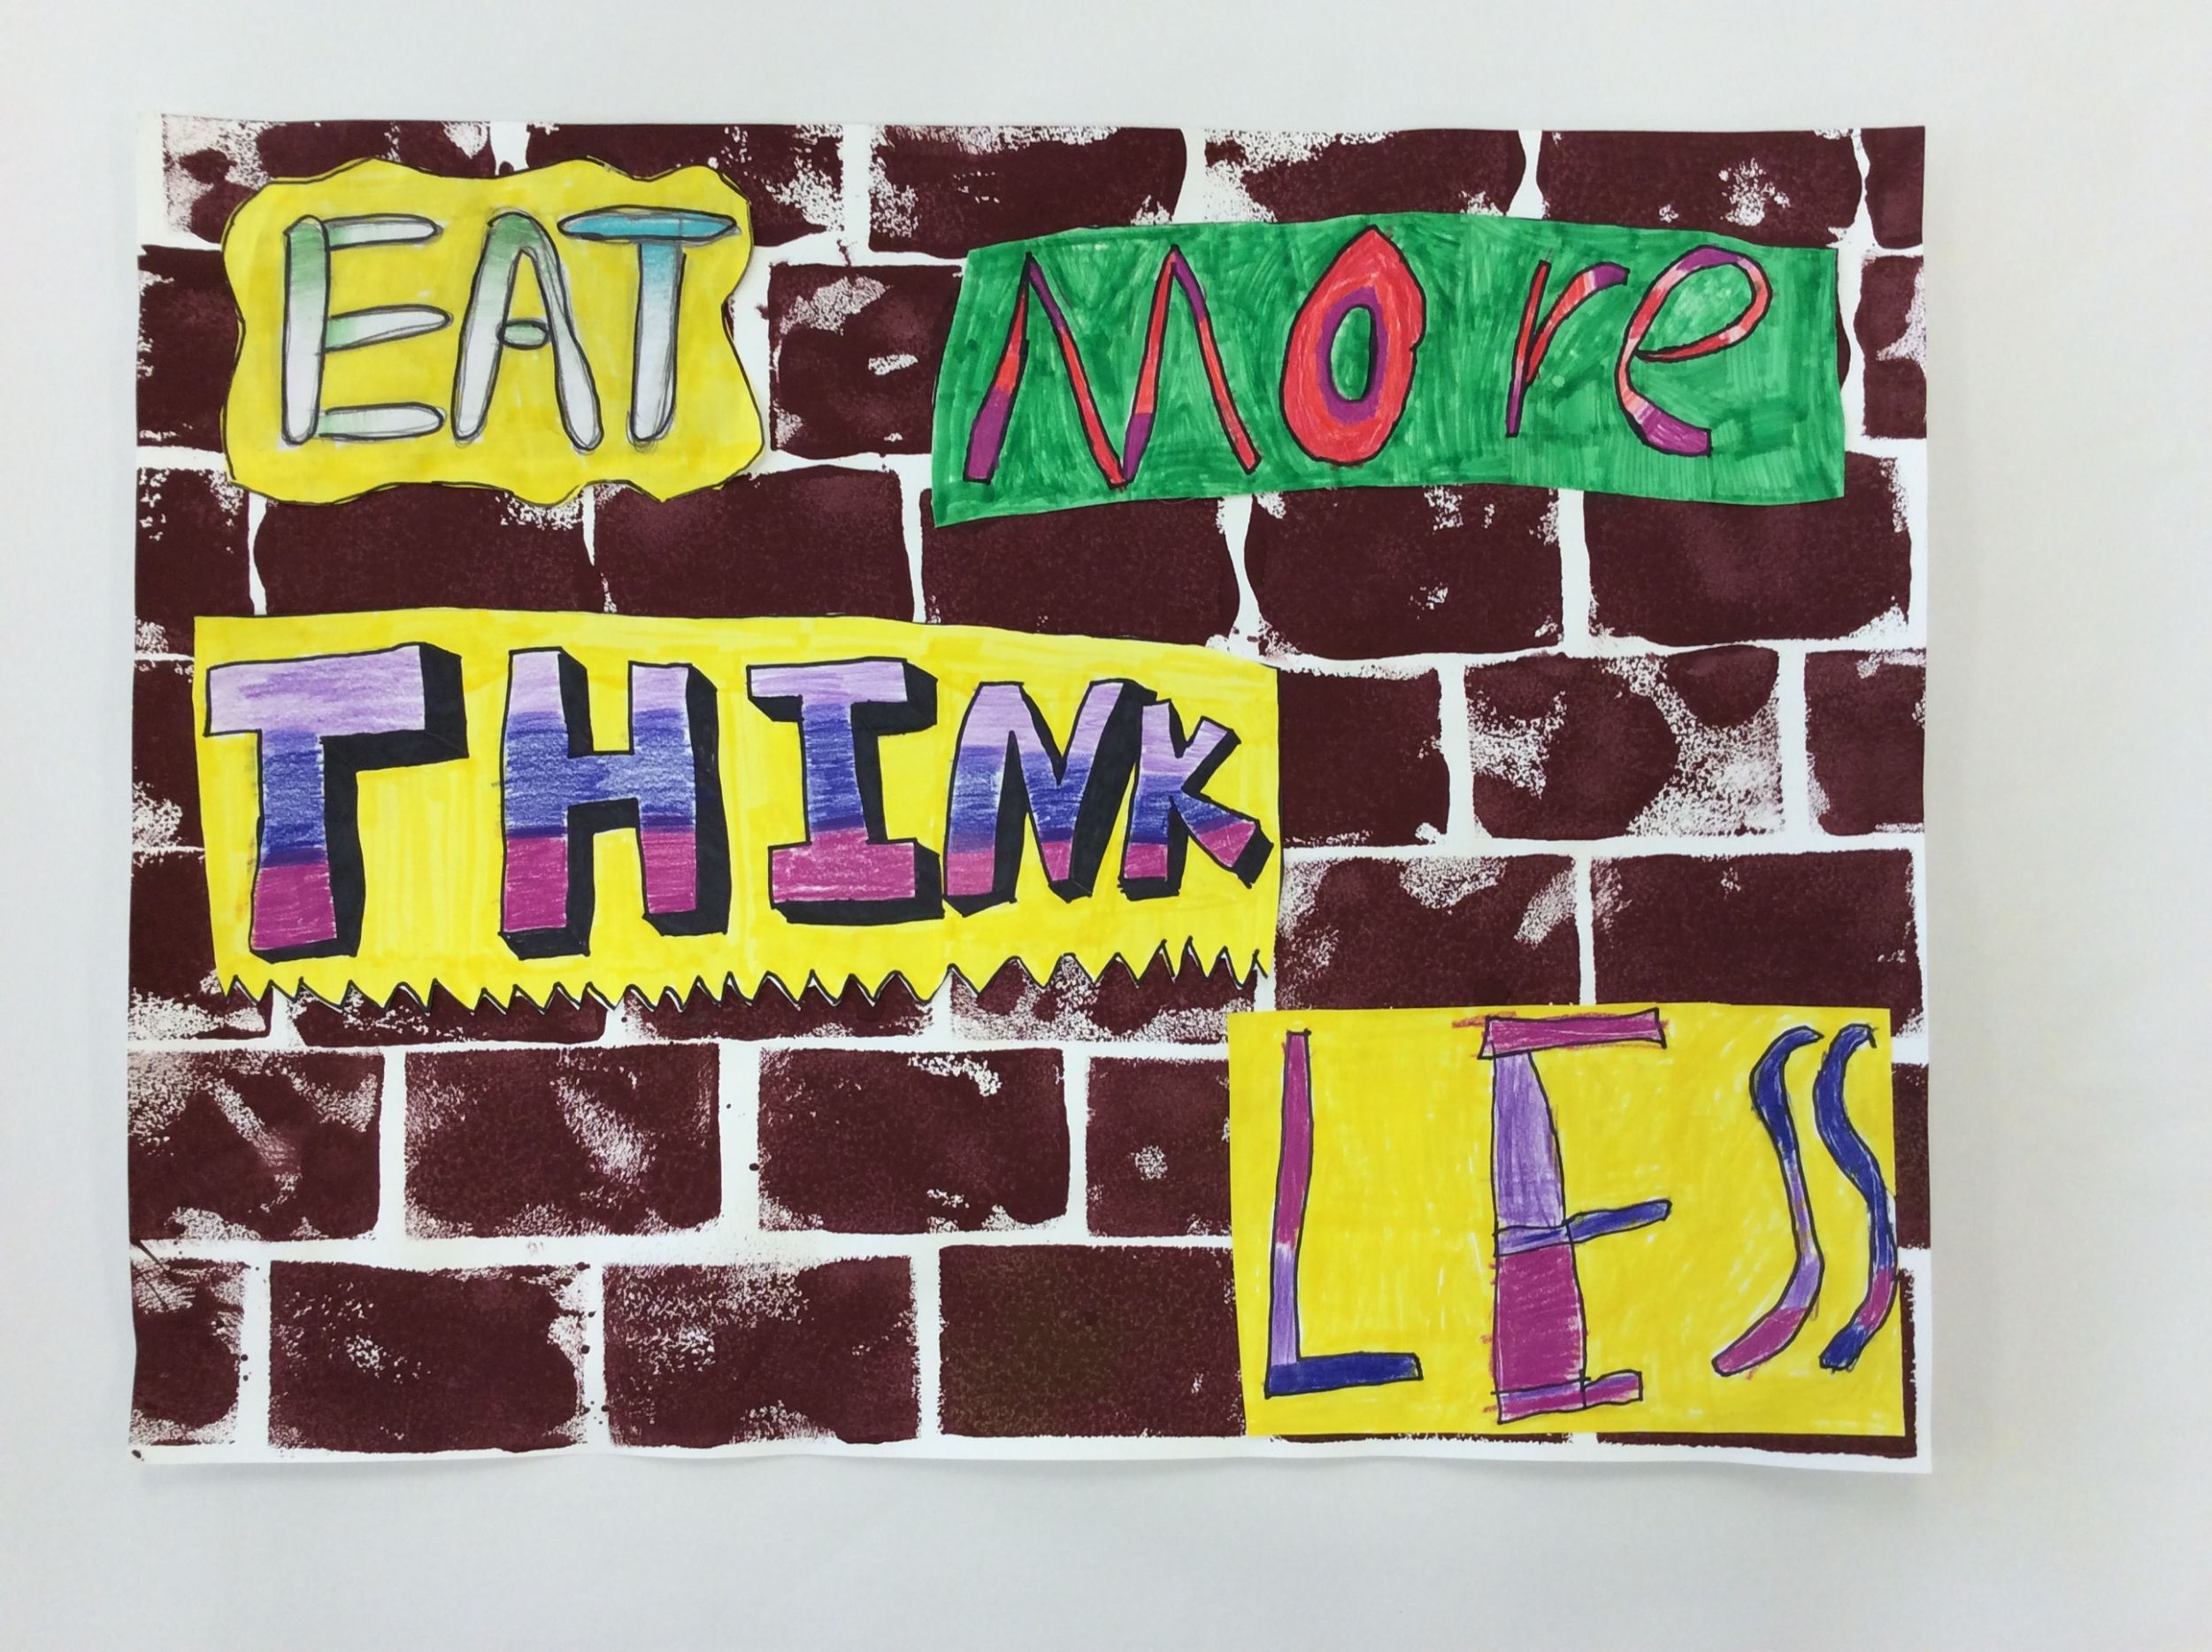 EAT MOre
THINK
LESS